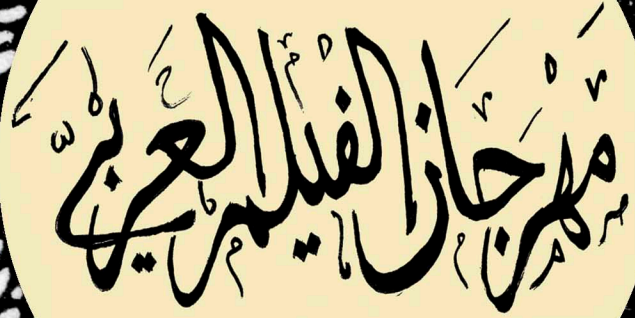 مهرجان الفيلم العربي